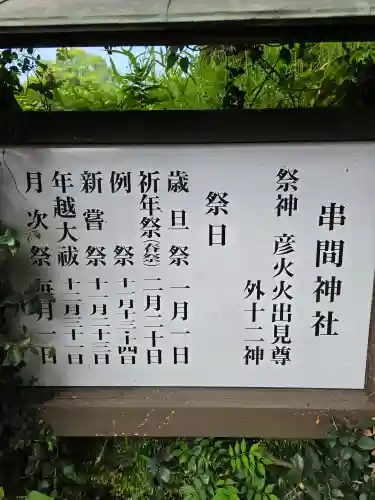 串間神社
祭神 彦火火出見尊
外十二神
祭日
歳旦祭 一月一日
祈年祭(春祭) 二月二十日
例祭 十月十三・十四日
新嘗祭 十一月二十三日
年越大祓 十二月三十一日
月次祭 毎月一日